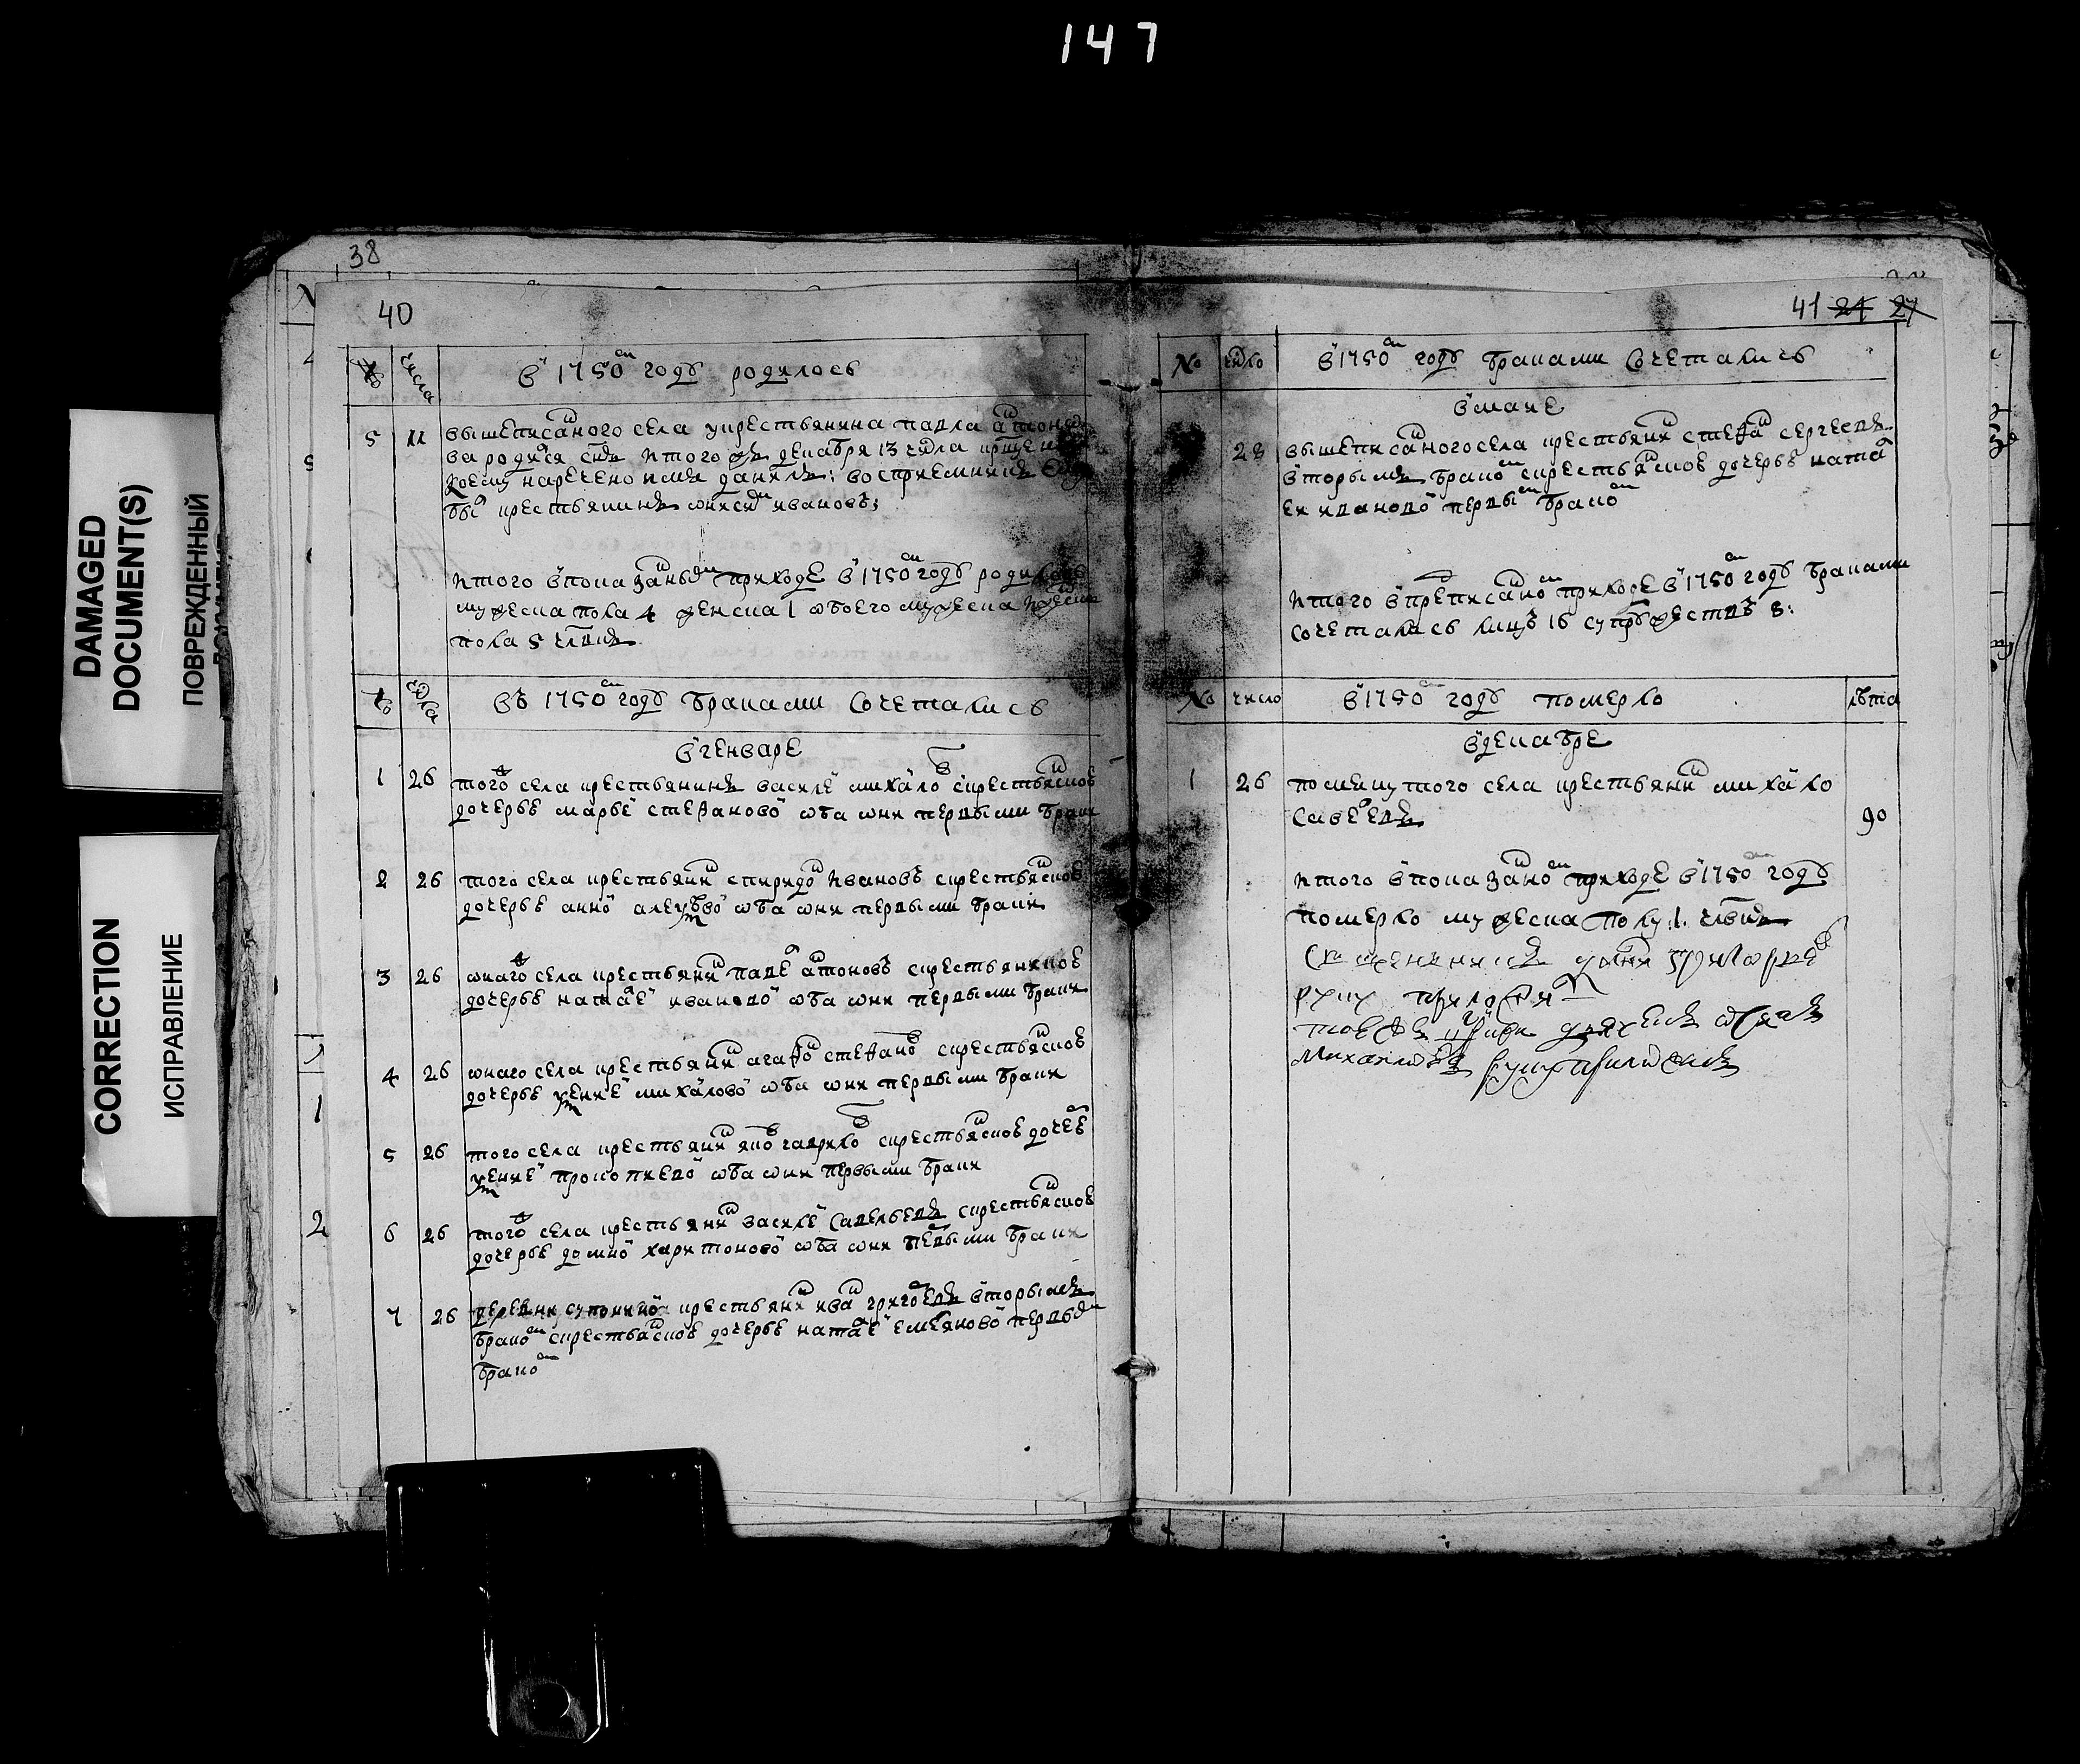 147
DAMAGED
DOCUMENT(S)
ПОВРЕЖДЕННЫЙ
CORRECTION
ИСПРАВЛЕНИЕ
38
40
№ числа в 1750м годѣ родилось
5 11 вышеписанного села у крестьянина павла
ва родился снъ и того ж декабря 13 числа
коему наречено имя данилъ: восприемникъ ему
был крестьянинъ ивановъ;
итого в показанном приходе в 1750м годѣ родилось
мужеска пола 4 женска 1 обоего мужеска и женска
пола 5 члвкъ
№ числа въ 1750м годѣ браками сочетались
в генваре
1 26 того села крестьянинъ василей михайлов с крестьянскою
дочерью марьей стефановой оба они первыми браки
2 26 того села крестьянин спиридон ивановъ с крестьянскою
дочерью анной оба они первыми браки
3 26 онаго села крестьянин павел с крестьянскою
дочерью наталей ивановой оба они первыми браки
4 26 онаго села крестьянин агафон стефанов с крестьянскою
дочерью михайловой оба они первыми браки
5 26 того села крестьянин яков гаврилов с крестьянскою дочерью
прокопиевой оба они первыми браки
6 26 того села крестьянин василей савельевъ с крестьянскою
дочерью домной харитоновой оба они первыми браки
7 26 деревни крестьянин иван григорьевъ вторымъ
браком с крестьянскою дочерью наталей емельяновой первым
браком
41 24 27
№ число в 1750м годѣ браками сочетались
в маие
28 вышеписанного села крестьянин стефан сергеевъ
вторымъ браком с крестьянскою дочерью натал
еи ивановой первым браком
итого в преписанном приходе в 1750м годѣ браками
сочеталась лицъ 16 супружествъ 8:
№ число в 1750м годѣ померло лѣта
в декабре
1 26 помянутого села крестьянин михайло
савельевъ 90
итого в показанном приходе в 1750м годѣ
померло мужеска полу 1 члвкъ
Священникъ григорьев
руку приложил
тоея ж церкви
Михайловъ руку приложилъ